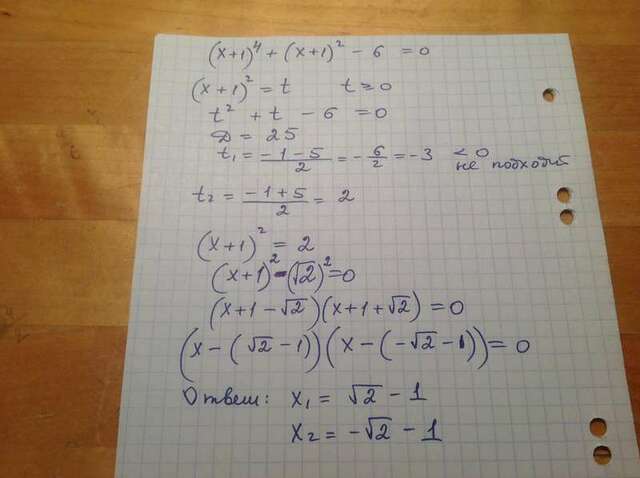 (x+1)⁴ + (x+1)² - 6 = 0
(x+1)² = t t ≥ 0
t² + t - 6 = 0
D = 25
t₁ = (-1-5)/2 = -6/2 = -3 < 0 не подходит
t₂ = (-1+5)/2 = 2
(x+1)² = 2
(x+1)² - (√2)² = 0
(x+1-√2)(x+1+√2) = 0
(x-(√2-1))(x-(-√2-1)) = 0
Ответ: x₁ = √2 - 1
x₂ = -√2 - 1